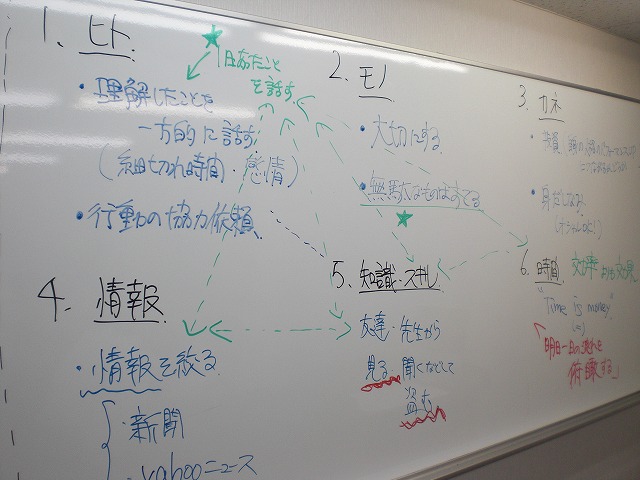 1. ヒト
★
1日あたこと
を話す
・理解したことを
一方的に話す
(細切れ時間・感情)
・行動の協力依頼
2. モノ
・大切にする
・無駄なものはすてる
★
3. カネ
4. 情報
・情報を絞る
・新聞
・yahooニュース
5、知識・スキル
友達・先生から
見る・聞くなどして
盗む
6、時間
効率
"Time is money"
明日一日の流れを
俯瞰する」